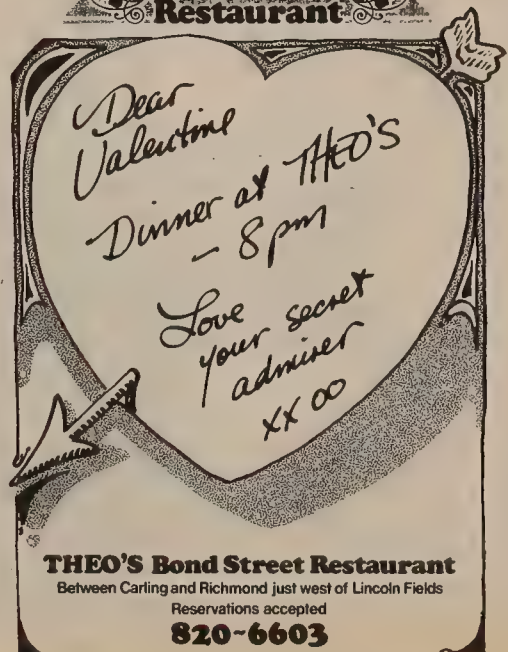 Restaurant
Dear
Valentine
Dinner at THEO'S
- 8 pm
Love
your secret
admirer
XX OO
THEO'S Bond Street Restaurant
Between Carling and Richmond just west of Lincoln Fields
Reservations accepted
820-6603